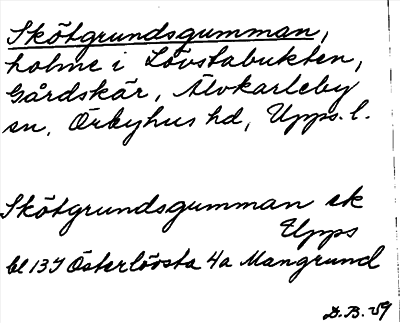 Skötgrundsgumman,
holme i Lövstabukten,
Gårdskär, Älvkarleby
sn, Örbyhus hd, Upps. l.
Skötgrundsgumman ek
Upps
bl 13I Österlövsta 4a Mangrund
D.B. 59